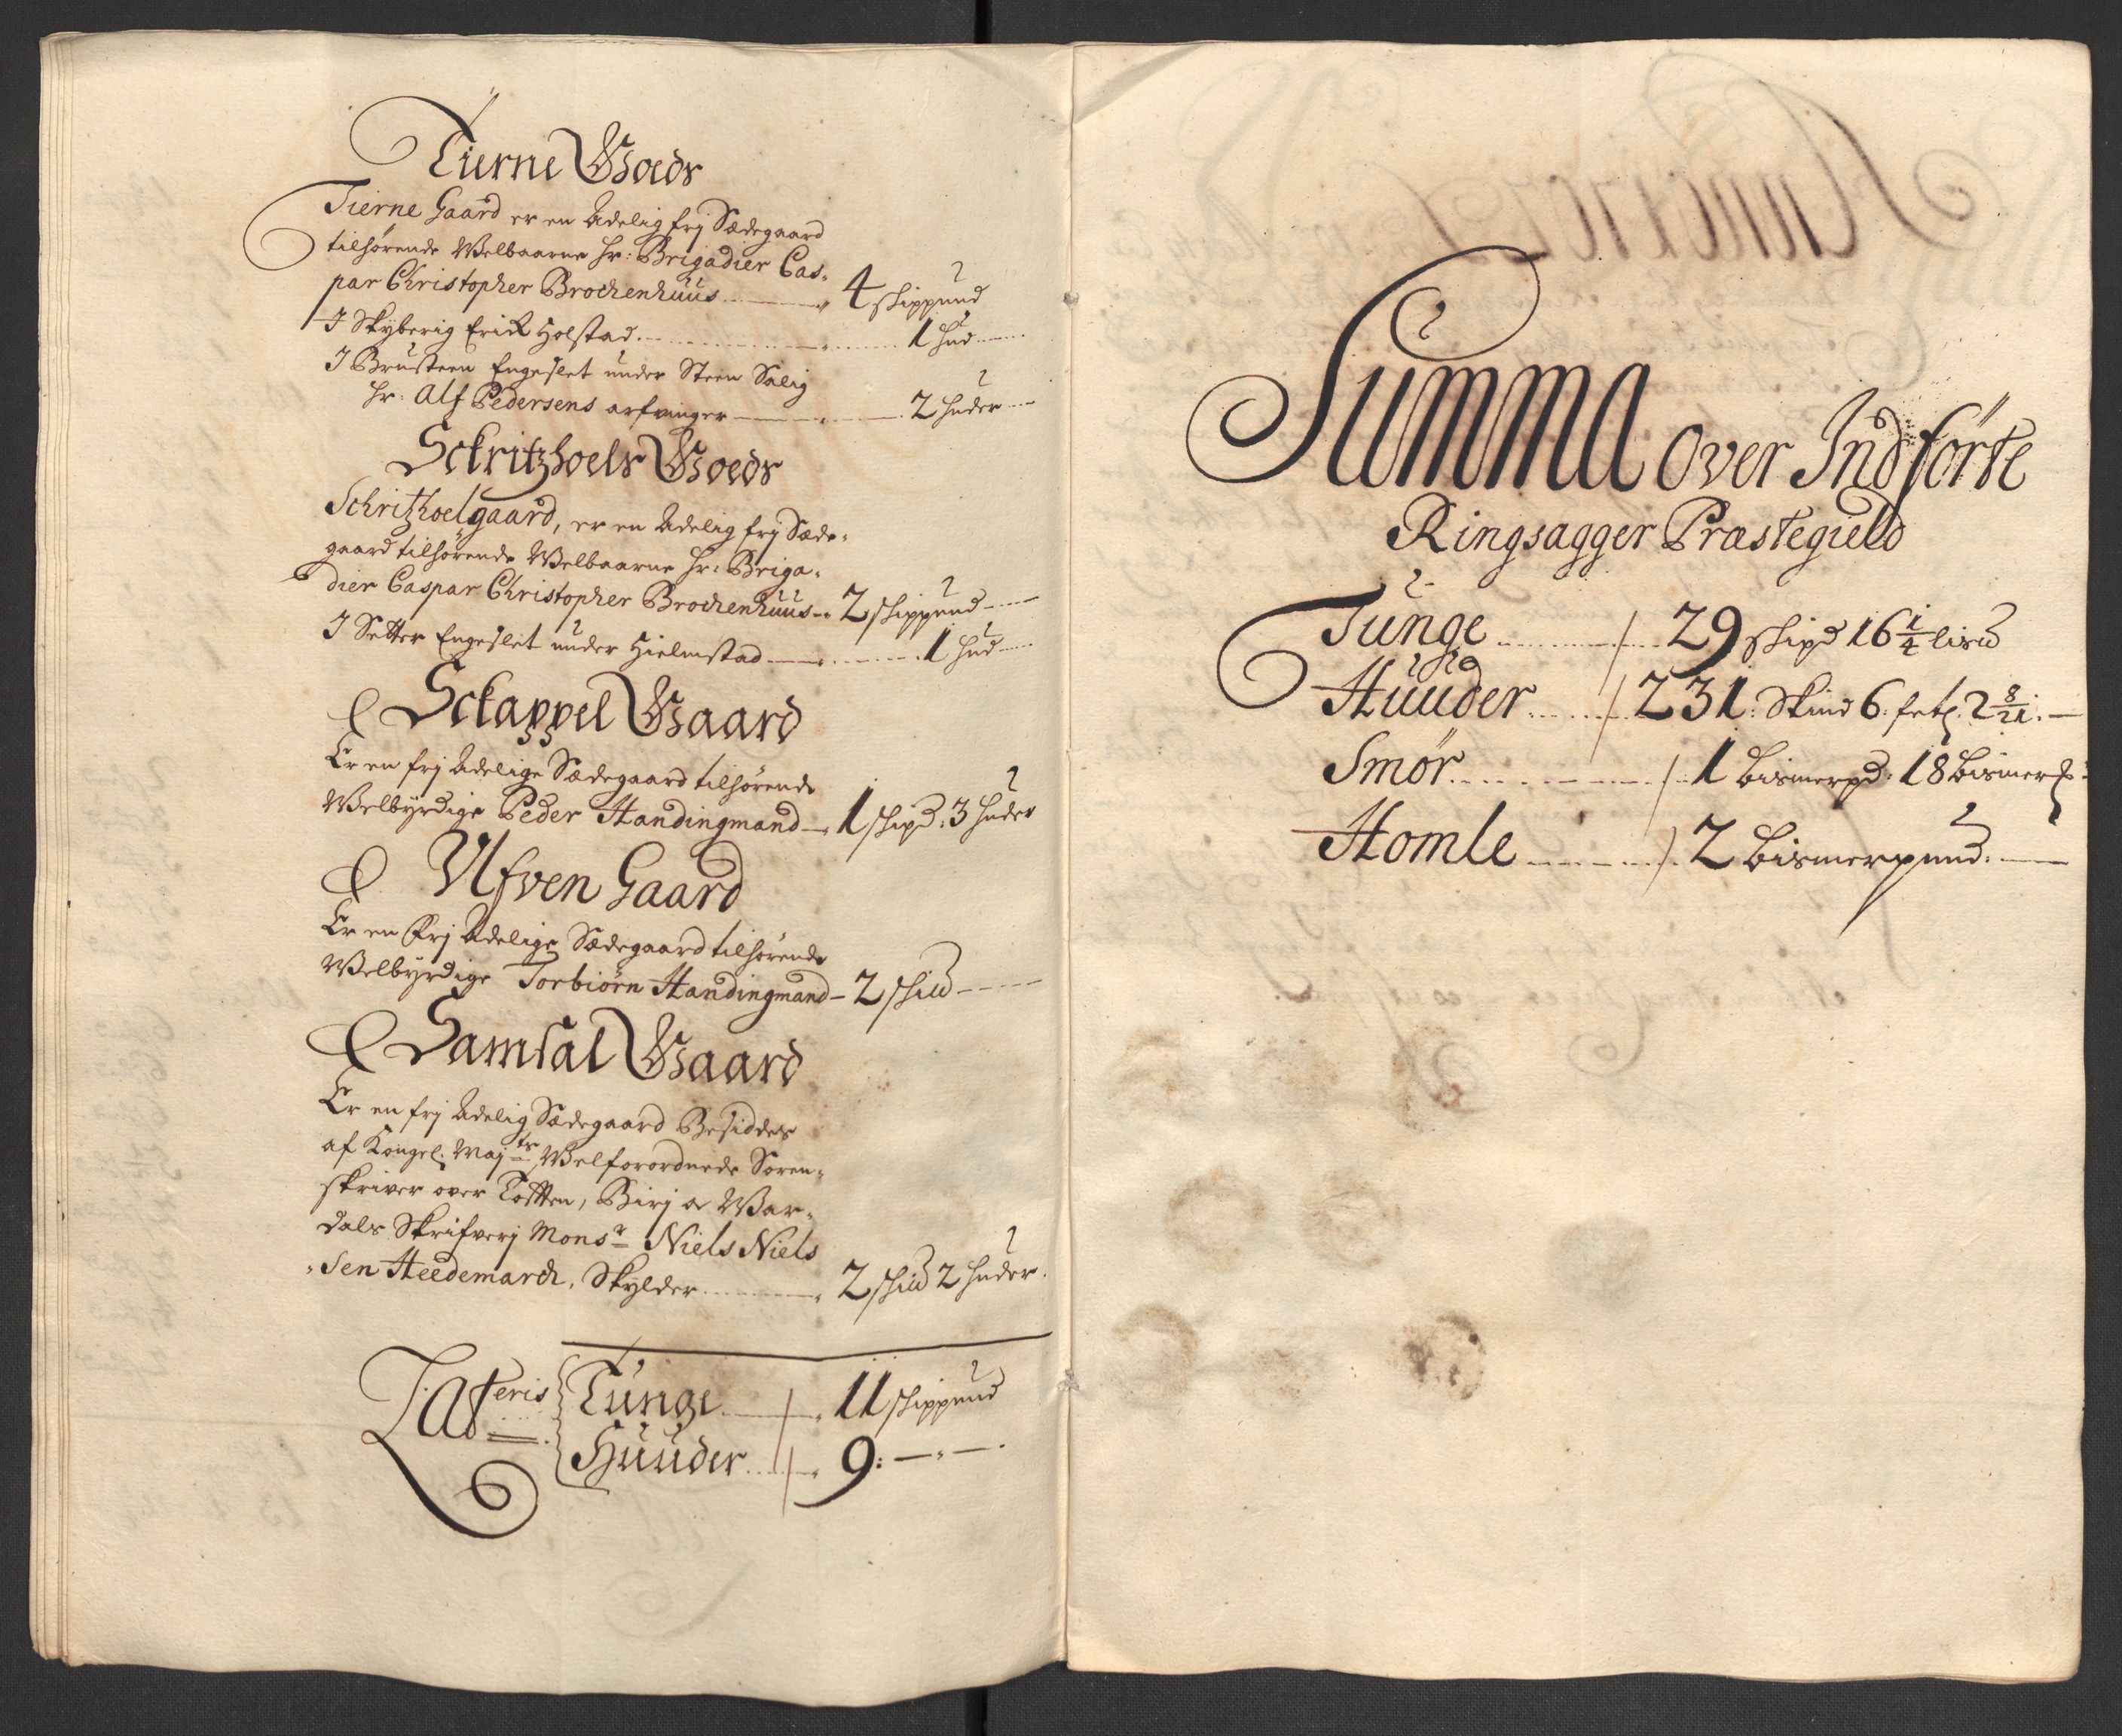 Tierne Goeds
Tierne Gaard er en Adelig frj Sædegaard
tilhørende Welbaarne Hr: Brigadier Cas-
par Christopher Brochenhuus 4 schippund
I Skyberig Erich Holstad 1 hud
I Brusteen Engeslet under Steen Salig
Hr: Alf Pedersens arfvinger 2 huder
Schritzhoels Goeds
Schritzhoelgaard, er en Adelig frj Sæde-
gaard tilhørende Welbaarne Hr: Briga-
dier Caspar Christopher Brochenhuus 2 schippund
I Setter Engeslet under Hielmstad 1 hud
Schappel Gaard
Er en frj Adelige Sædegaard tilhørende
Welbyrdige Peder Handingmand 1 schipd: 3 huder
Ulfven Gaard
Er en Frj Adelige Sædegaard tilhørende
Welbyrdige Torbiørn Handingmand 2 schid
Samsal Gaard
Er en frj Adelig Sædegaard Besiddes
af Kongel: Majts Welforordnede Soren-
skriver over Totten, Birj oc War-
dals Skrifverj Monsr Niels Niels
sen Heedemarch, Skylder 2 schid 2 huder
Lateris Tunge 11 schippund
Huuder 9:
Summa over Indførte
Ringsagger Præstegield
Tunge 29 schipd 16 1/4 lisd
Huuder 231: Skind 6: 2 8/21
Smør 1 bismerpd: 18 bismer
Homle 2 bismerpund